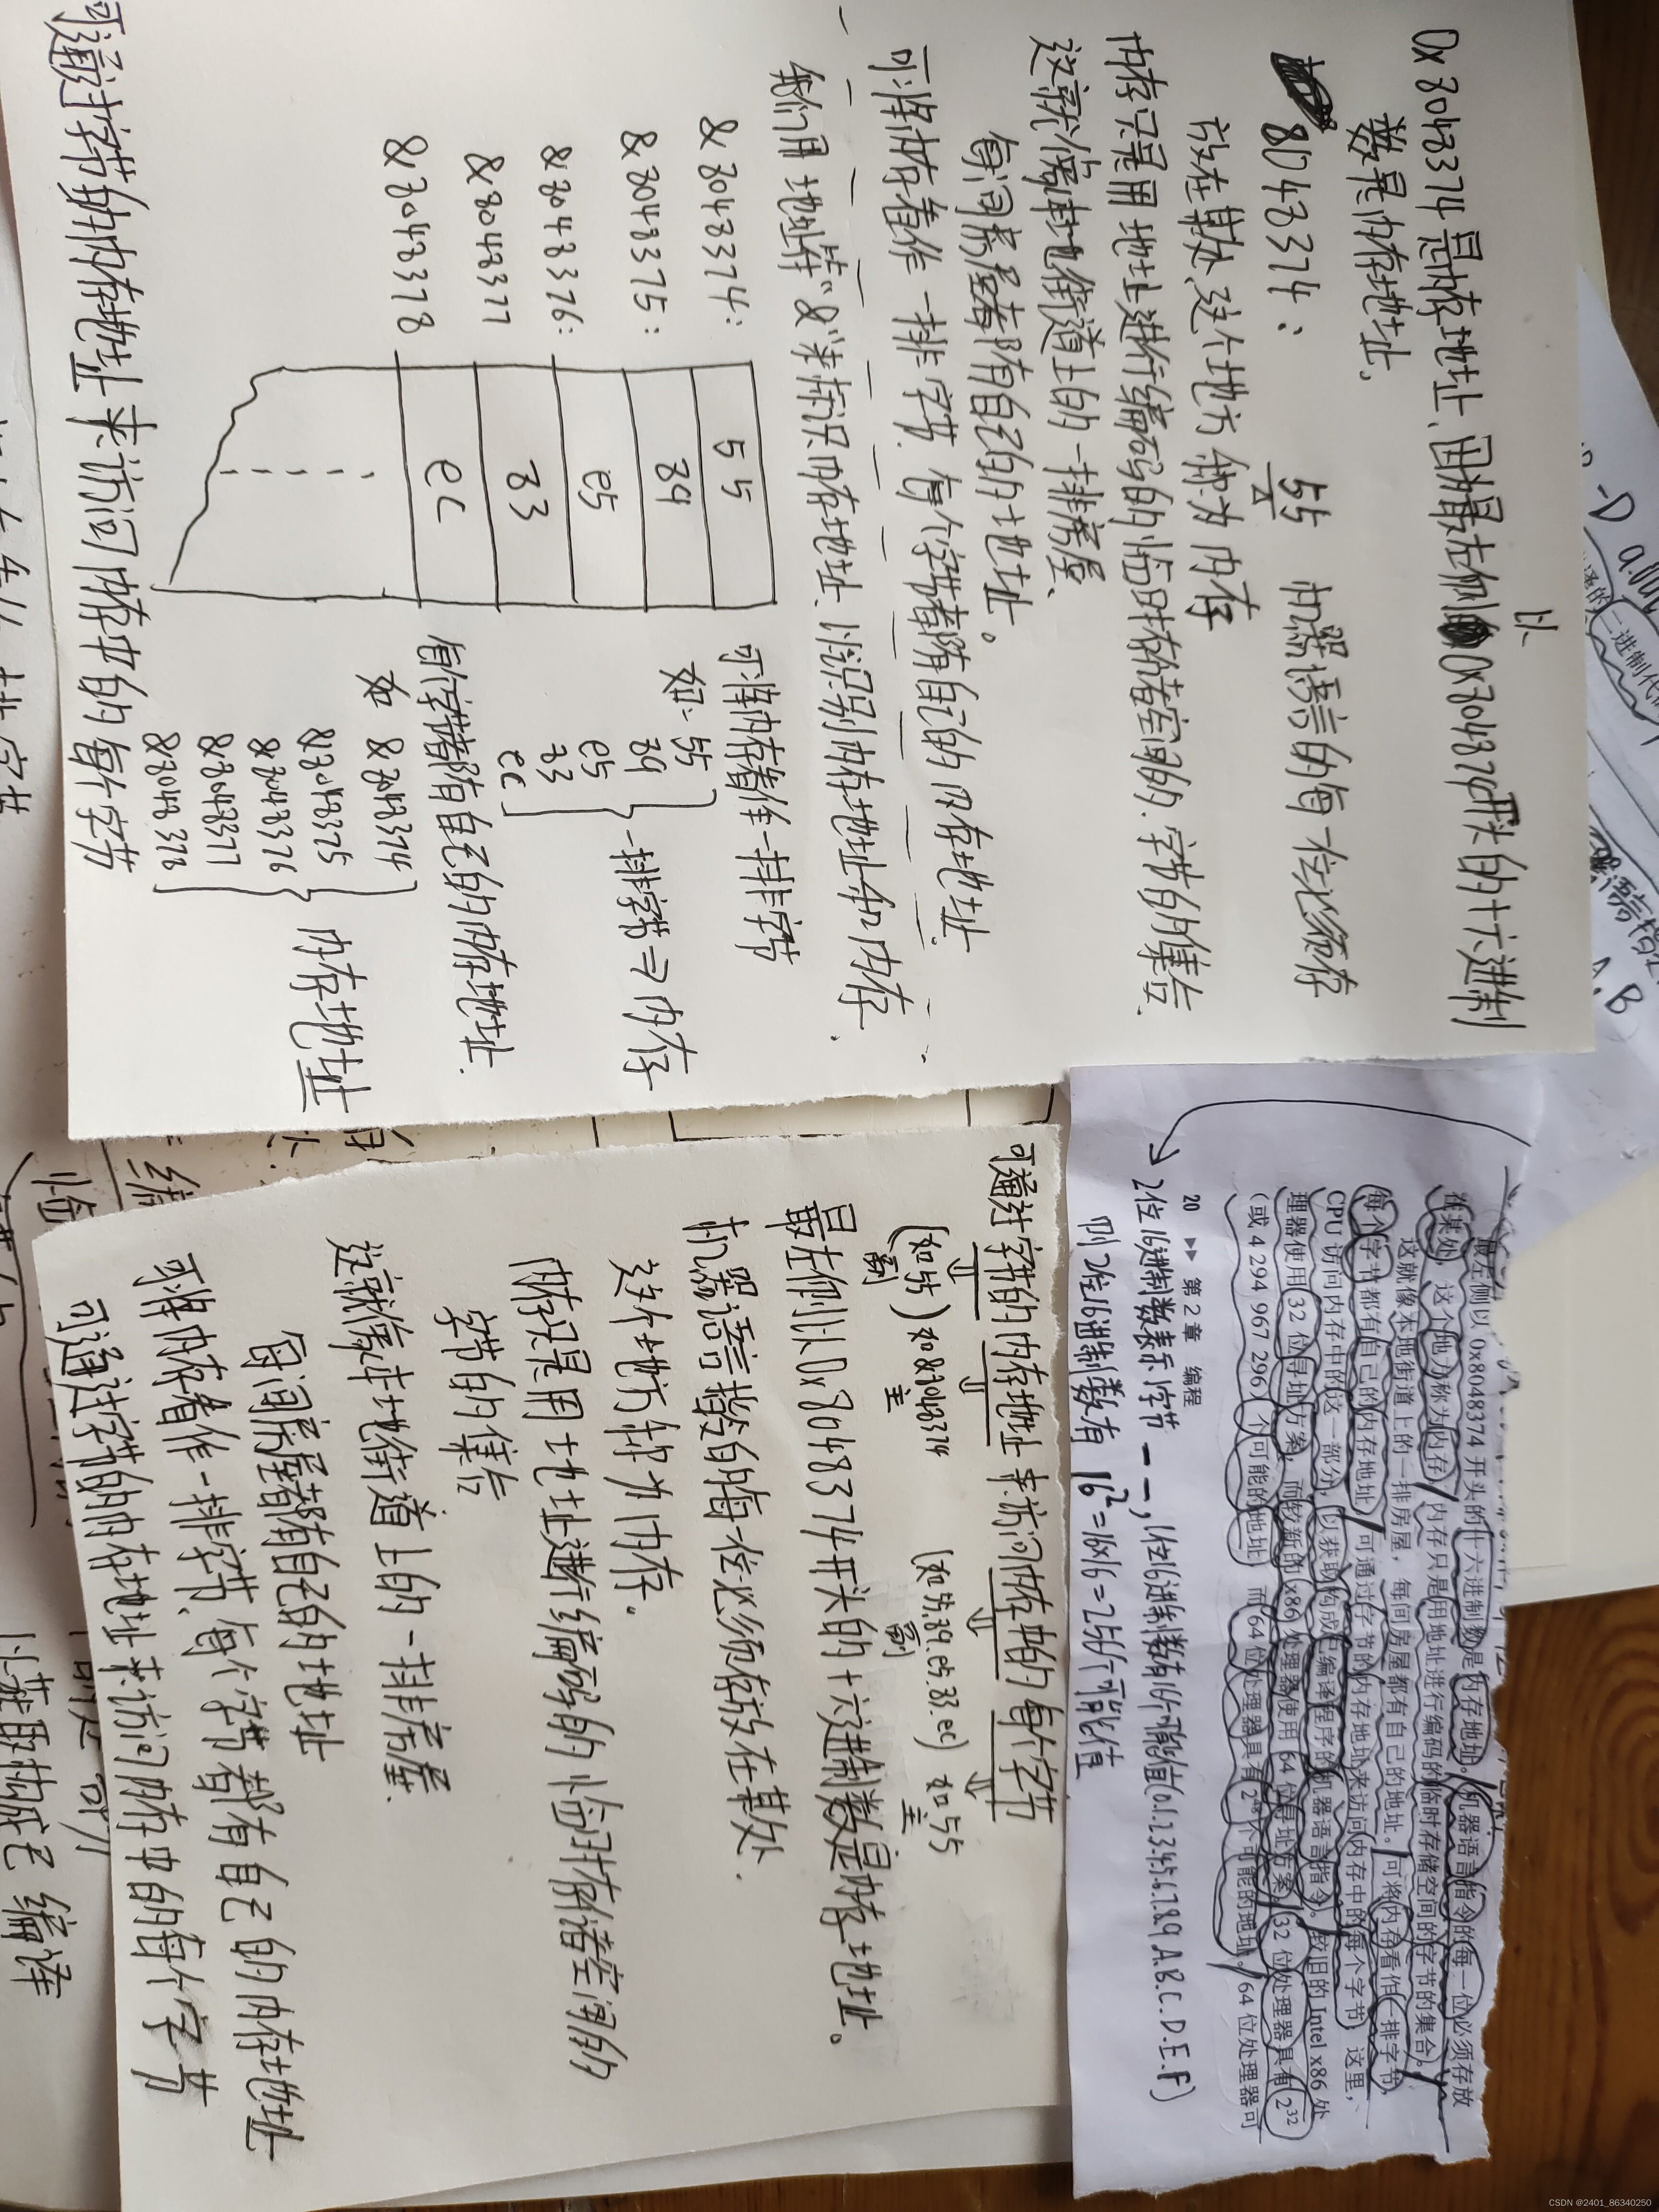 以
0x8048374是内存地址、因为最左侧0x8048374开头的十六进制
数是内存地址。
8048374: 55 机器语言的每一位必须存
放在某处、这个地方称为内存
内存只是用地址进行编码的临时存储空间的、字节的集合.
这就像本地街道上的一排房屋、
每间房屋都有自己的地址。
可将内存看作一排字节、每个字节都有自己的内存地址.
我们用地址符"&"来标识内存地址、以识别内存地址和内存、
&8048374: 55
&8048375: 89
&8048376: e5
&8048377 83
&8048378 ec
可将内存看作一排字节
如: 55
89
e5
83
ec
一排字节⇒内存
每个字节都有自己的内存地址.
如 &8048374
&8048375
&8048376
&8048377
&8048378
内存地址
可通过字节的内存地址来访问内存中的每个字节
最左侧以 0x8048374 开头的十六进制数是内存地址。机器语言指令的每一位必须存放
在某处，这个地方称为内存。内存只是用地址进行编码的临时存储空间的字节的集合。
这就像本地街道上的一排房屋，每间房屋都有自己的地址。可将内存看作一排字节，
每个字节都有自己的内存地址。可通过字节的内存地址来访问内存中的每个字节。这里，
CPU 访问内存中的这一部分，以获取构成已编译程序的机器语言指令。较旧的 Intel x86 处
理器使用 32 位寻址方案，而较新的 x86 处理器使用 64 位寻址方案。32 位处理器具有 2³²
(或 4 294 967 296) 个可能的地址，而 64 位处理器具有 2⁶⁴ 个可能的地址。64 位处理器可
20 ▸▸ 第 2 章 编程
2位16进制数表示1字节 一一, 1位16进制数有16个可能值(0.1.2.3.4.5.6.7.8.9 A.B.C.D.E.F)
则2位16进制数有 16²=16×16=256个可能值
可通过字节的内存地址来访问内存中的每个字节
(如55) 如&8048374 (如55.89.e5.83.ec) 如55
最左侧以0x8048374开头的十六进制数是内存地址。
机器语言指令的每一位必须存放在某处.
这个地方称为内存。
内存只是用地址进行编码的临时存储空间的
字节的集合
这就像本地街道上的一排房屋.
每间房屋都有自己的地址
可将内存看作一排字节、每个字节都有自己的内存地址
可通过字节的内存地址来访问内存中的每个字节
CSDN @2401_86340250